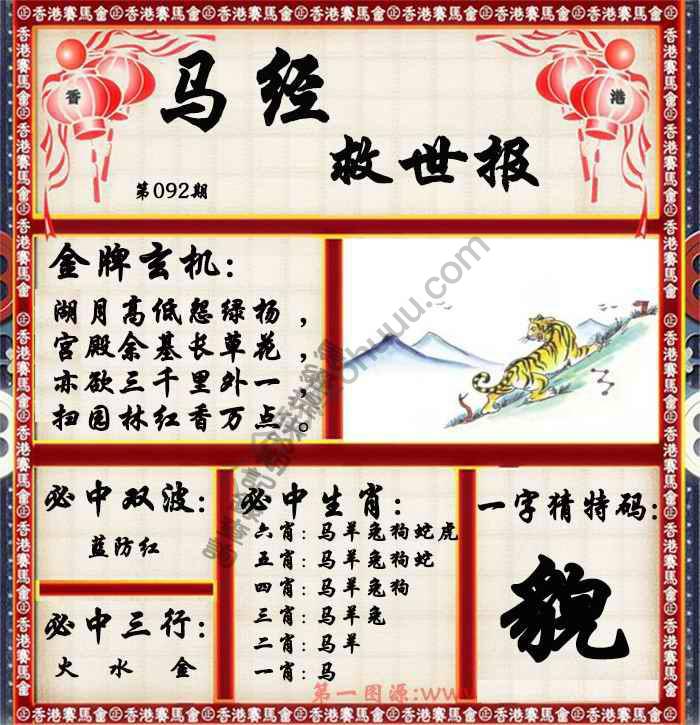 香港賽馬會
香 港
马经
救世报
第092期
金牌玄机:
湖月高低怨绿杨,
宫殿余基长草花,
亦欲三千里外一,
扫园林红香万点。
必中双波:
蓝防红
必中三行:
火 水 金
必中生肖:
六肖:马羊兔狗蛇虎
五肖:马羊兔狗蛇
四肖:马羊兔狗
三肖:马羊兔
二肖:马羊
一肖:马
一字猜特码:
貌
第一图源:www